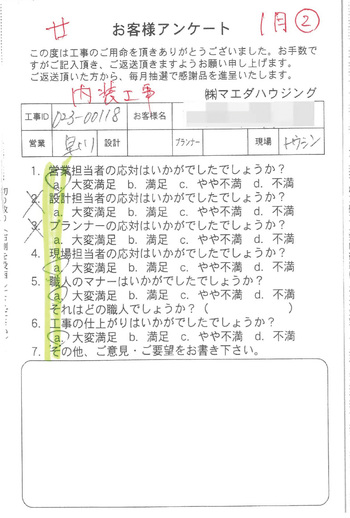 廿
お客様アンケート
1月②
この度は工事のご用命を頂きありがとうございました。お手数で
すがご記入頂き、ご返送頂きますようお願い申し上げます。
ご返送頂いた方から、毎月抽選で感謝品を進呈いたします。
内装工事
㈱マエダハウジング
工事ID 023-00118 お客様名
営業 設計 プランナー 現場
1. 営業担当者の応対はいかがでしたでしょうか?
a. 大変満足 b. 満足 c. やや不満 d. 不満
2. 設計担当者の応対はいかがでしたでしょうか?
a. 大変満足 b. 満足 c. やや不満 d. 不満
3. プランナーの応対はいかがでしたでしょうか?
a. 大変満足 b. 満足 c. やや不満 d. 不満
4. 現場担当者の応対はいかがでしたでしょうか?
a. 大変満足 b. 満足 c. やや不満 d. 不満
5. 職人のマナーはいかがでしたでしょうか?
a. 大変満足 b. 満足 c. やや不満 d. 不満
それはどの職人でしょうか?( )
6. 工事の仕上がりはいかがでしたでしょうか?
a. 大変満足 b. 満足 c. やや不満 d. 不満
7. その他、ご意見・ご要望をお書き下さい。